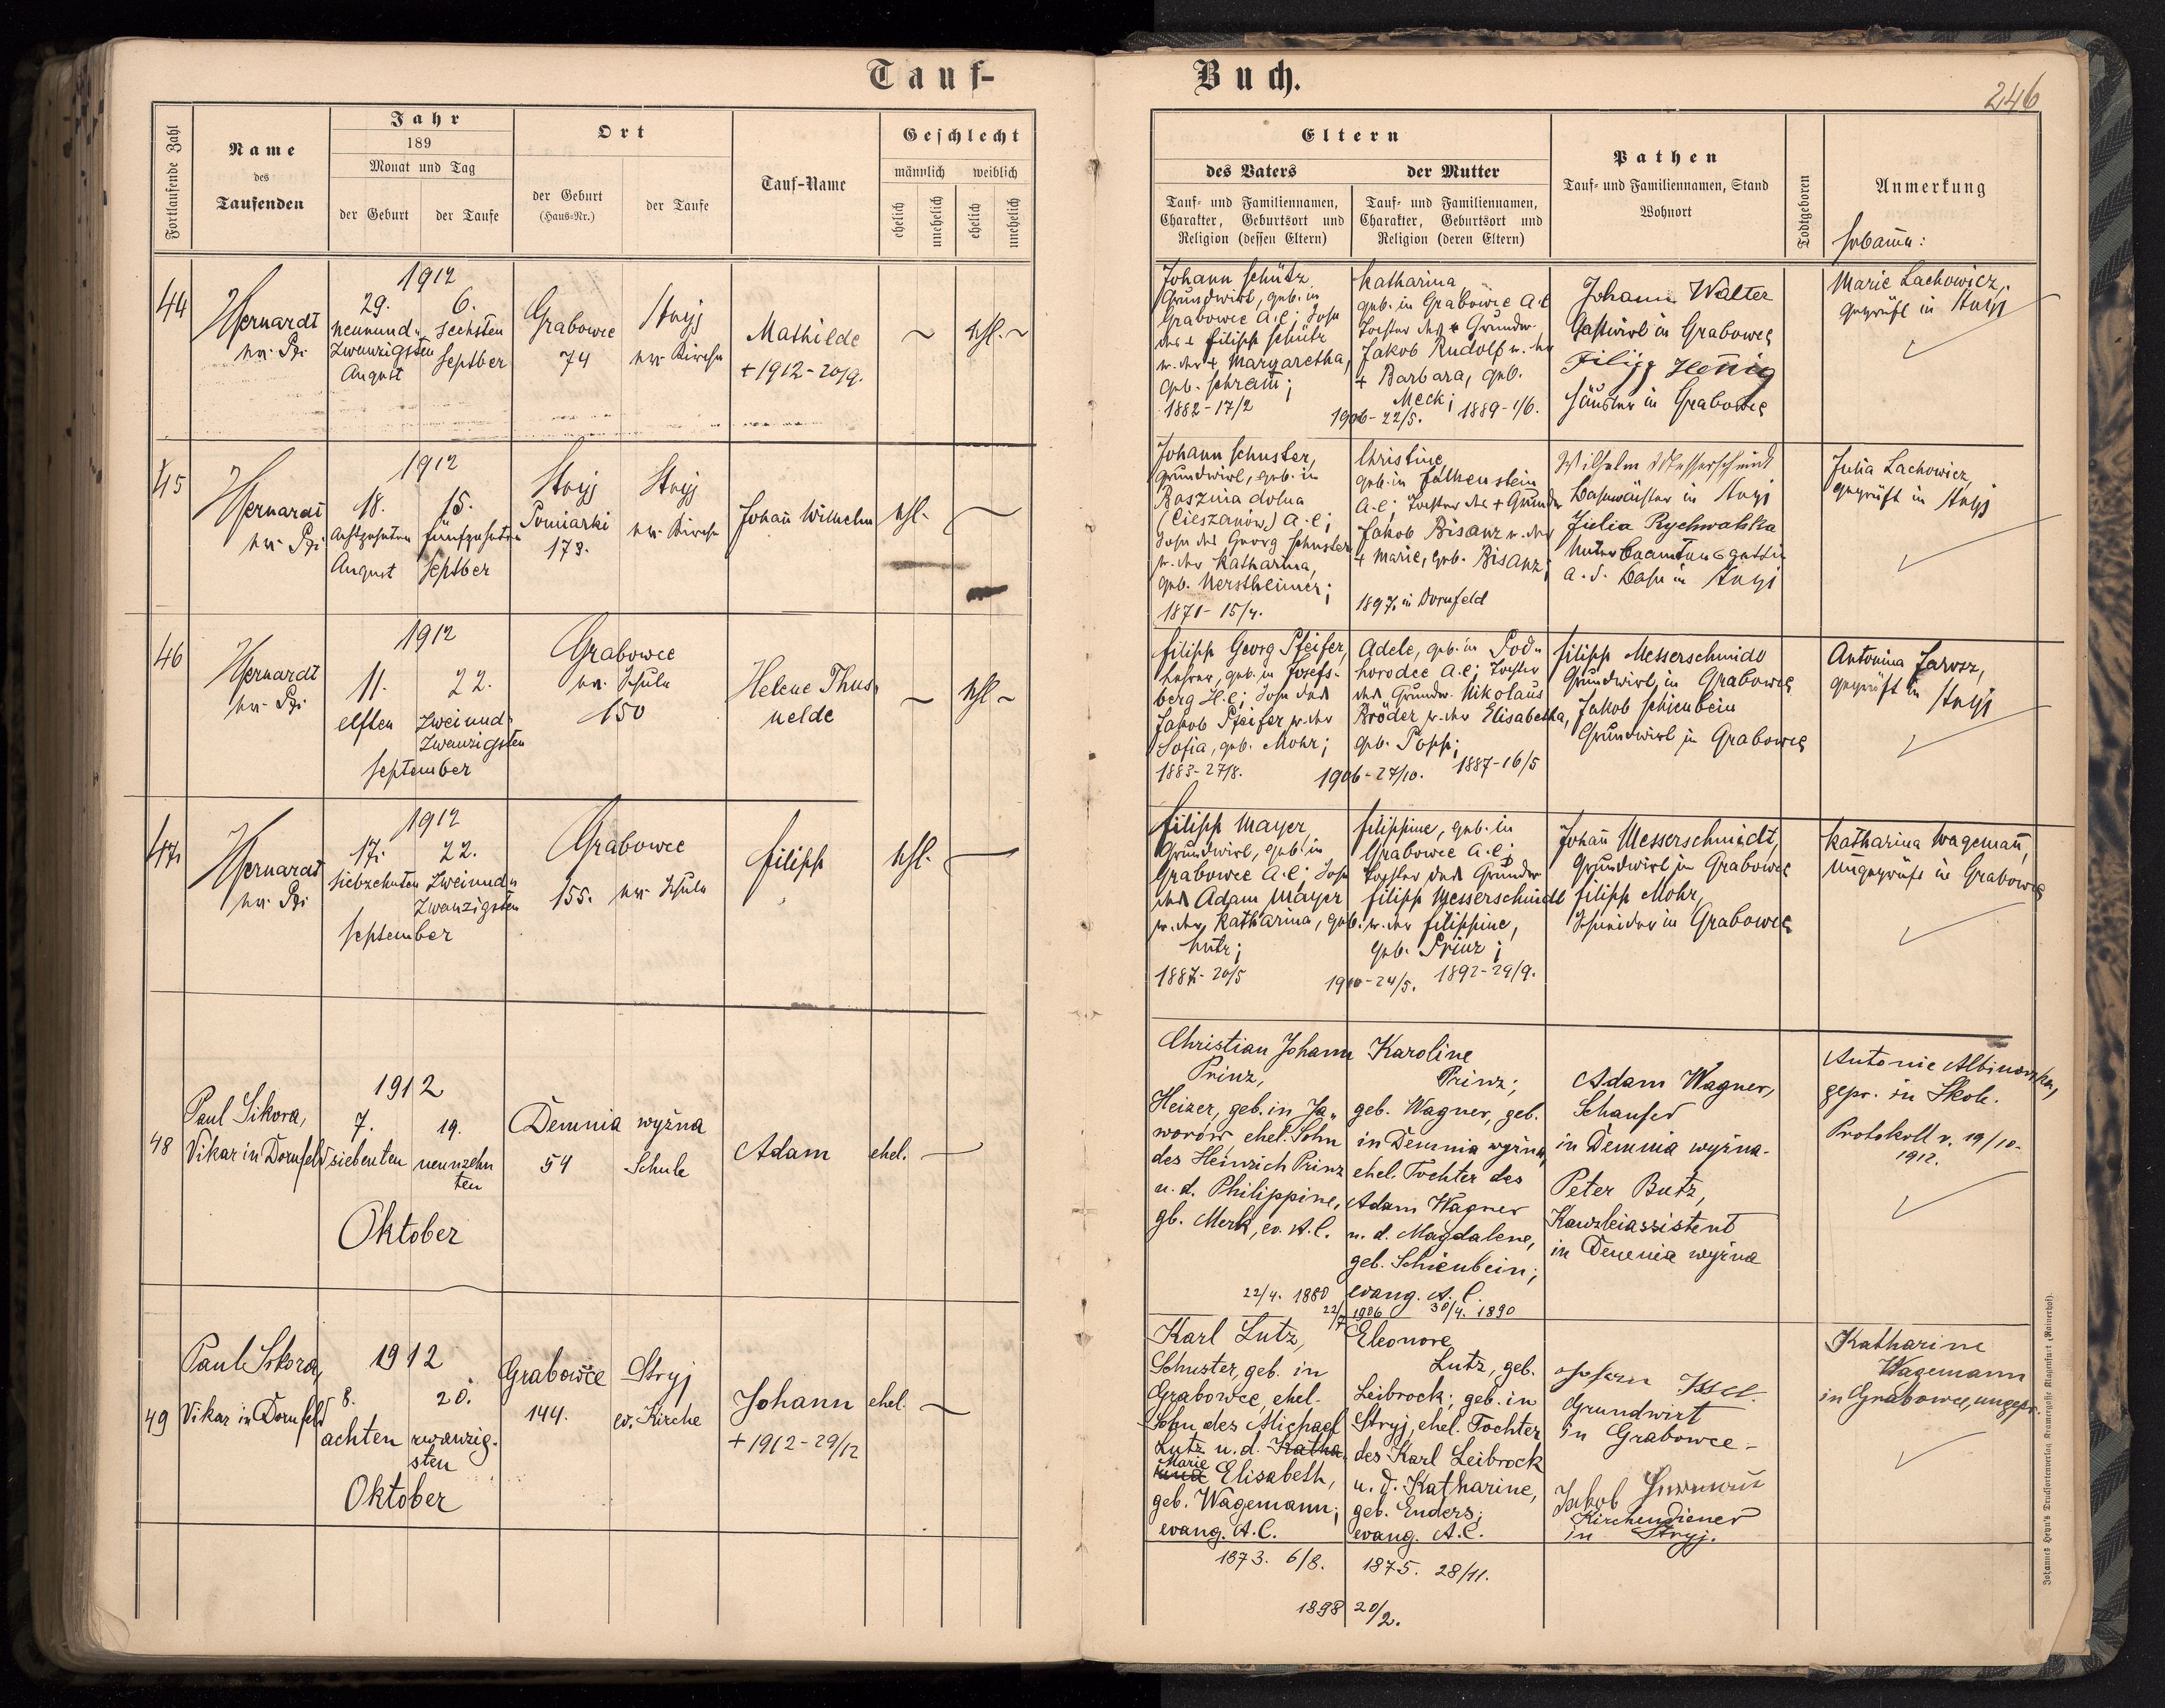 Tauf-
Buch.
246
Fortlaufende Zahl
Name
des
Taufenden
Jahr
189
Monat und Tag
der Geburt
der Taufe
Ort
der Geburt
(Haus-Nr.)
der Taufe
Tauf-Name
Geschlecht
männlich
weiblich
ehelich
unehelich
ehelich
unehelich
Eltern
des Vaters
der Mutter
Tauf- und Familiennamen,
Charakter, Geburtsort und
Religion (dessen Eltern)
Tauf- und Familiennamen,
Charakter, Geburtsort und
Religion (deren Eltern)
Pathen
Tauf- und Familiennamen, Stand
Wohnort
Todtgeboren
Anmerkung
Hebamme:
44
1912
29.
neunund-
zwanzigsten
August
6.
sechsten
Septber
Grabowce
74
Stryj
ev. Kirche
Mathilde
+ 1912-20/9.
ehl.
Johann Schütz
Grundwirt, geb. in
Grabowce A.C; Sohn
des + Filipp Schütz
u. der + Margaretha,
geb. Schram̅;
1882-17/2
1906-22/5.
Katharina
geb. in Grabowce A.C
Tochter des + Grundw.
Jakob Rudolf u. der
+ Barbara, geb.
Meck;
1889-1/6.
Johann Walter
Gastwirt in Grabowce
Filipp Hen̅ig
Häusler in Grabowce
Marie Lachowicz,
geprüft in Stryj
45
1912
18.
Achtzehnten
August
15.
fünfzehnten
Septber
Stryj
Pomiarki
173.
Stryj
ev. Kirche
Johan̅ Wilhelm
ehl.
Johann Schuster,
Grundwirt, geb. in
Basznia dolna
(Cieszanów) A.C;
Sohn des Georg Schuster
u. der Katharina,
geb. Nerstheimer;
1871-15/4.
Christine
geb. in Falkenstein
A.C; Tochter des + Grundw
Jakob Bisanz u. der
+ Marie, geb. Bisanz;
1897. in Dornfeld
Wilhelm Messerschmidt
Bahnwächter in Stryj
Julia Rychwalska
Unterbeamtensgattin
a. d. Bahn in Stryj
Julia Lachowicz,
geprüft in Stryj
46
1912
11.
elften
22.
zweiund-
zwanzigsten
September
Grabowce
ev. Schule
150
Helene Thus-
nelde
ehl.
Filipp Georg Pfeifer,
Lehrer, geb. in Josefs-
berg H.C; Sohn des
Jakob Pfeifer u. der
Sofia, geb. Mohr;
1883-27/8.
1906-27/10.
Adele, geb. in Pod-
horodce A.C; Tochter
des Grundw. Nikolaus
Bröder u. der Elisabetha,
geb. Popp;
1887-16/5
Filipp Messerschmidt
Grundwirt in Grabowce
Jakob Schienbein
Grundwirt in Grabowce
Antonina Jarosz,
geprüft in Stryj
47
1912
17.
siebzehnten
22.
zweiund-
zwanzigsten
September
Grabowce
155. ev. Schule
Filipp
ehl.
Filipp Mayer,
Grundwirt, geb. in
Grabowce A.C; Sohn
des Adam Mayer
u. der Katharina, geb.
1887-20/5
1910-24/5.
Filippine, geb. in
Grabowce A.C;
Tochter des Grundw.
Filipp Messerschmidt
u. der Filippine,
geb. Prinz;
1892-29/9.
Johan̅ Messerschmidt,
Grundwirt in Grabowce
Filipp Mohr,
Schneider in Grabowce
Katharina Wageman̅,
ungeprüft in Grabowce
48
Paul Sikora,
Vikar in Dornfeld
1912
7.
siebenten
19.
neunzehn
ten
Oktober
Demnia wyżna
54
Schule
Adam
ehel.
Christian Johann
Prinz,
Heizer, geb. in Ja-
worów, ehel. Sohn
des Heinrich Prinz
u. d. Philippine,
gb. Merk, ev. A.C.
22/4. 1880
22/7 1906
Karoline
Prinz;
geb. Wagner, geb.
in Demnia wyżna,
ehel. Tochter des
Adam Wagner
u. d. Magdalene,
geb. Schienbein;
evang. A.C.
30/4. 1890
Adam Wagner,
in Demnia wyżna.
Peter Butz,
Kanzleiassistent
in Demnia wyżna
Antonie Albinowska,
gepr. in Skole.
Protokoll v. 19/10.
1912.
49
Paul Sikora,
Vikar in Dornfeld
1912
8.
achten
20.
zwanzig-
sten
Oktober
Grabowce
144.
Stryj
ev. Kirche
Johann
+ 1912-29/12
ehel.
Karl Lutz,
Schuster, geb. in
Grabowce, ehel.
Sohn des Michael
Lutz u. d. Katha
Marie
und Elisabeth,
geb. Wagemann;
evang. A.C.
1873. 6/8.
1898 20/2.
Eleonore
Lutz, geb.
Leibrock; geb. in
Stryj, ehel. Tochter
des Karl Leibrock
u. d. Katharine,
geb. Enders;
evang. A.C.
1875. 28/11.
Grundwirt
in Grabowce-
Jakob
Kirchendiener
in Stryj.
Katharine
Wagemann
in Grabowce, ungepr.
Johannes Heyn's Drucksortenverlag Kramergasse Klagenfurt (Rainerhof).